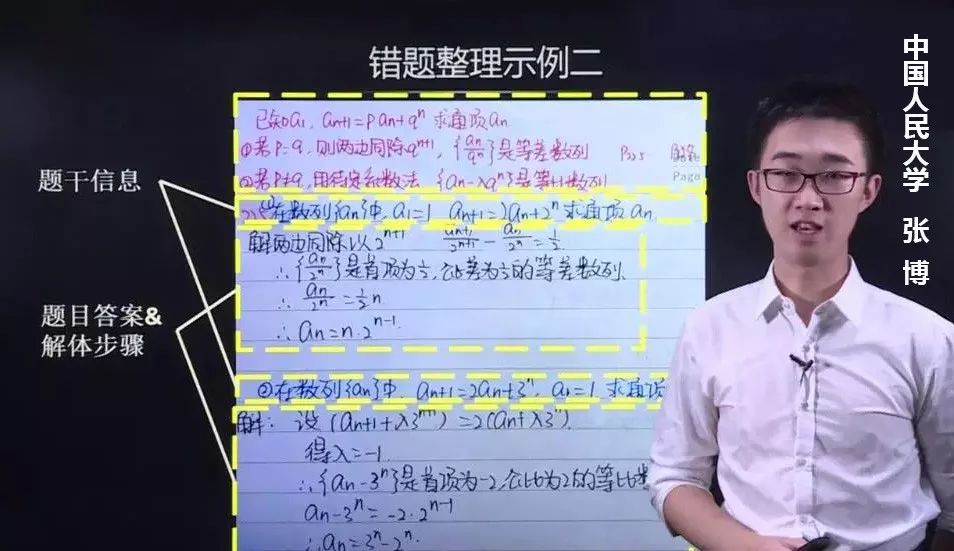 错题整理示例二
中国人民大学 张 博
题干信息
题目答案&
解体步骤
已知a₁, aₙ₊₁=paₙ+qⁿ 求通项aₙ
①若P=q, 则两边同除qⁿ⁺¹, {aₙ/qⁿ}是等差数列
②若P≠q, 用待定系数法 {aₙ-λqⁿ}是等比数列
①在数列{aₙ}中, a₁=1 aₙ₊₁=2aₙ+2ⁿ 求通项 aₙ
解两边同除以2ⁿ⁺¹ aₙ₊₁/2ⁿ⁺¹ - aₙ/2ⁿ = 1/2
∴{aₙ/2ⁿ}是首项为1/2, 公差为1/2的等差数列
∴ aₙ/2ⁿ = 1/2 n
∴ aₙ=n·2ⁿ⁻¹
②在数列{aₙ}中, aₙ₊₁=2aₙ+3ⁿ, a₁=1 求通项
解: 设 (aₙ₊₁+λ3ⁿ⁺¹)=2(aₙ+λ3ⁿ)
得λ=-1
∴{aₙ-3ⁿ}是首项为-2, 公比为2的等比
aₙ-3ⁿ=-2·2ⁿ⁻¹
∴aₙ=3ⁿ-2ⁿ